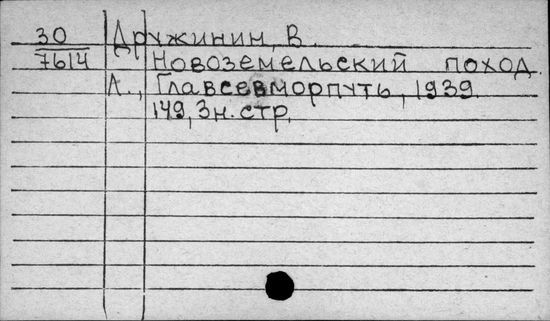 30 Дружинин, В.
7614 Новоземельский поход.
Л., Главсевморпуть, 1939.
149, 3 н. стр.